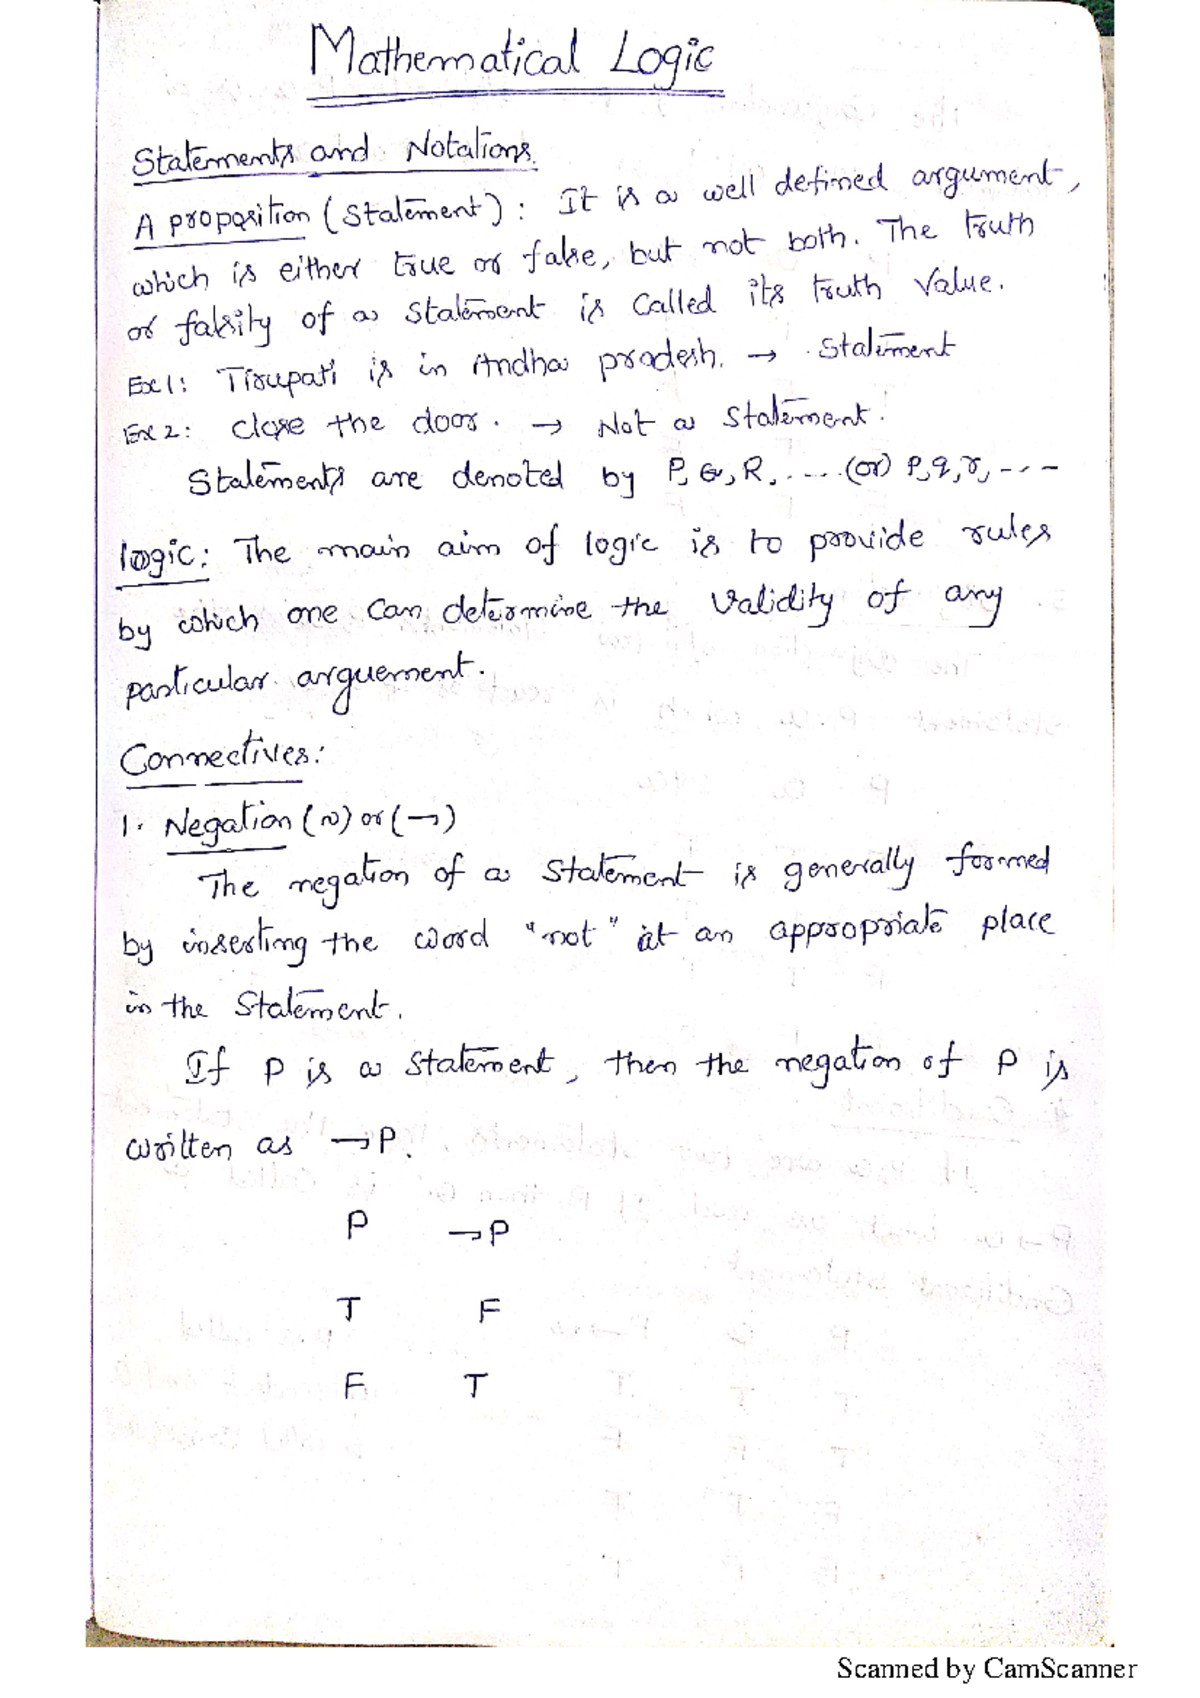 Mathematical Logic
Statements and Notations.
A proposition (Statement) : It is a well defined argument,
which is either true or false, but not both. The truth
or falsity of a Statement is Called its truth Value.
Ex1: Tirupati is in Andha pradesh. → Statement
Ex2: Close the door. → Not a Statement.
Statements are denoted by P, Q, R, .... (or) p, q, r, ---
Logic: The main aim of logic is to provide rules
by which one Can determine the Validity of any
particular arguement.
Connectives:
1. Negation (~) or (¬)
The negation of a Statement is generally formed
by inserting the word "not" at an appropriate place
in the Statement.
If P is a Statement, then the negation of P is
written as ¬P.
P ¬P
T F
F T
Scanned by CamScanner